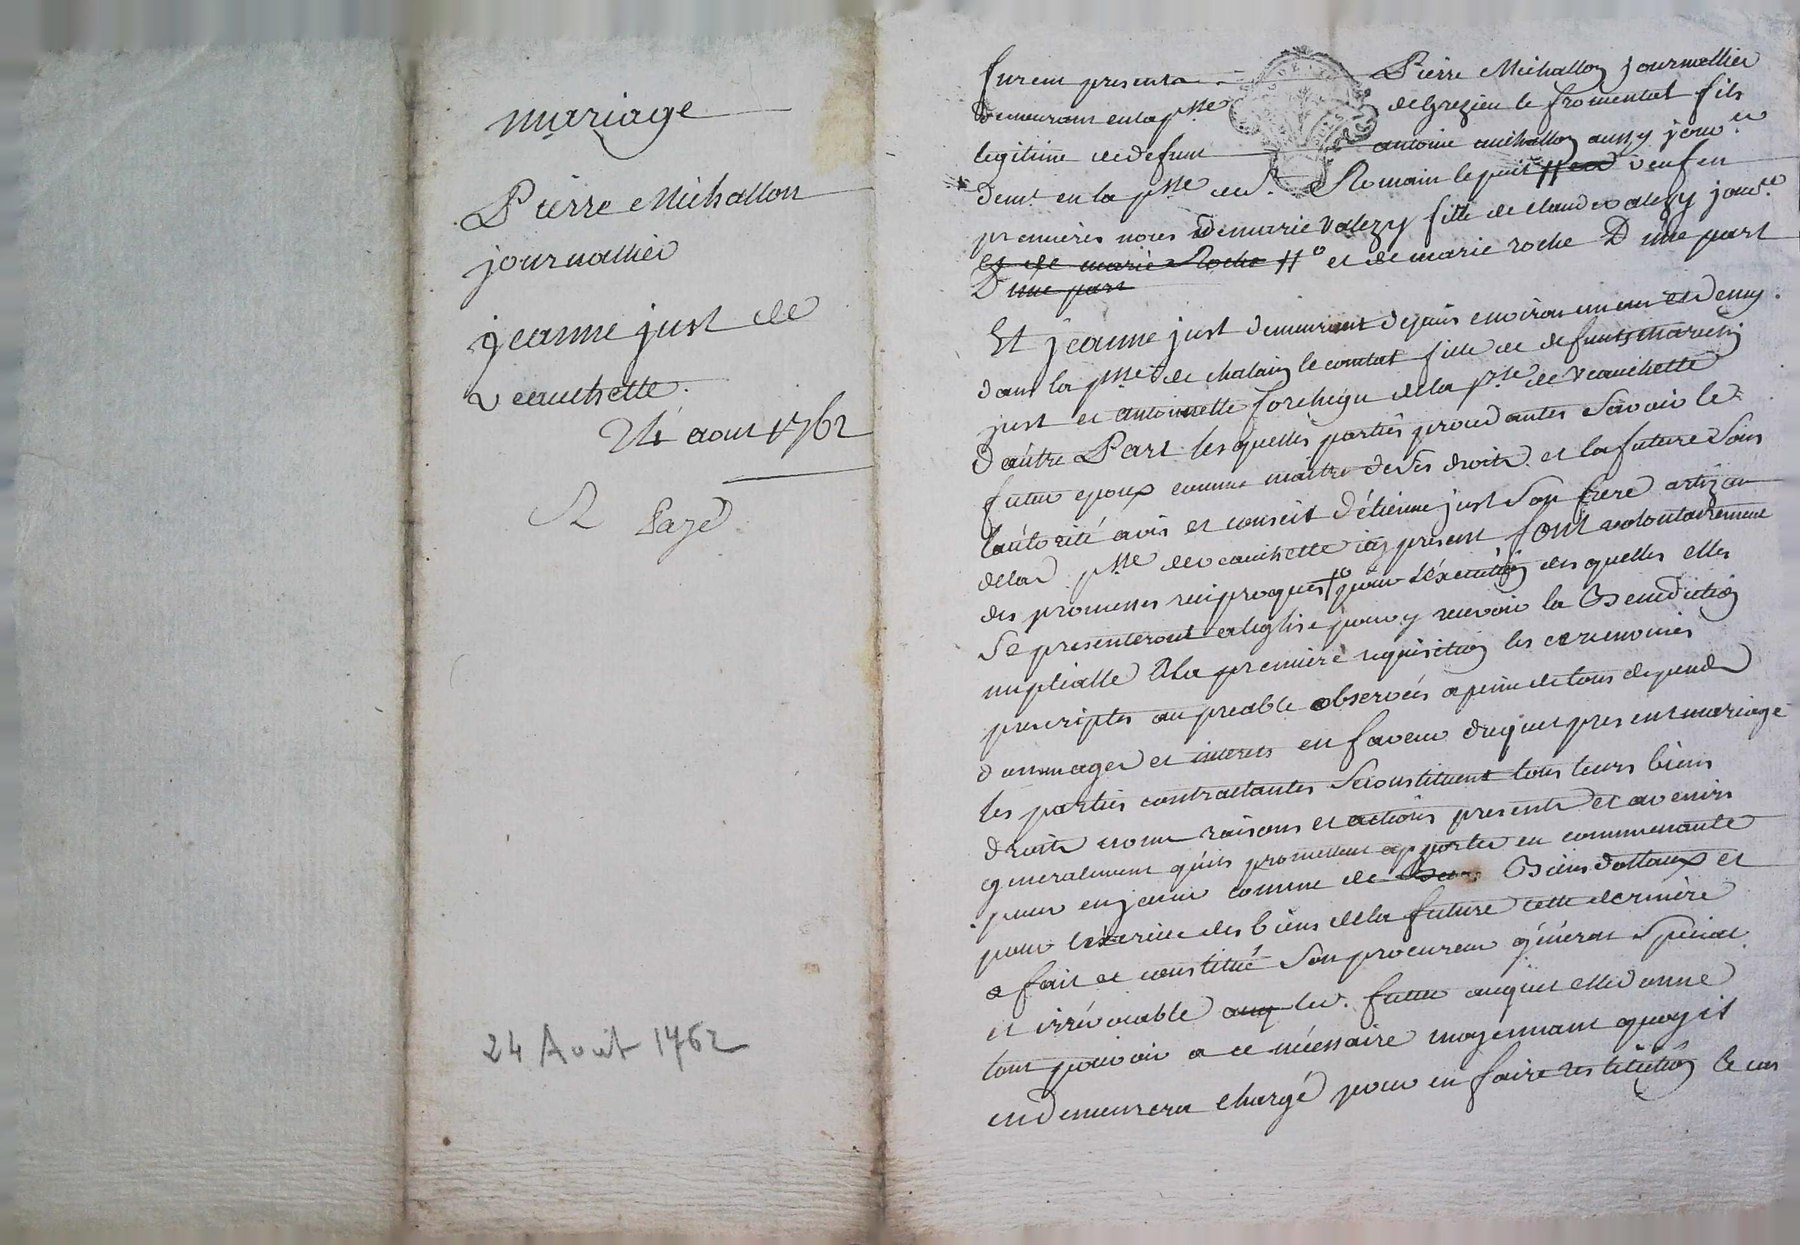 mariage
Pierre Michallon
journallier
jeanne just de
veauchette.
24 aout 1762
Payé
24 Août 1762
furent presents Pierre Michallon journallier
demeurant en la psse de Grezieu le fromental fils
legitime de defunt antoine michallon aussy jour.er
demt en la psse de St. Romain le puit veuf en
premieres noces de marie valezy fille de claude valezy jour.er
et de marie Roche et de marie roche D'une part
D'une part
Et jeanne just demeurant depuis environ un an et demy
dans la psse de chalain le comtal fille de defunts
just et antoinette de la psse de veauchette
d'autre Part lesquelles parties procedantes Savoir le
futur epoux comme maitre de ses droits et la future Sous
l'autorité avis et conseil d'étienne just Son frere artizan
de lad. psse de veauchette icy present font volontairement
des promesses reciproques pour l'éxecution desquelles elles
Se presenteront a leglise pour y recevoir la Benediction
nuptialle a la premiere requisition les ceremonies
prescriptes au preable observées a peine de tous depends
dommages et interets en faveur duquel present mariage
les parties contractantes Se constituent tous leurs biens
droits noms raisons et actions presents et avenirs
generalement qu'ils promettent apporter en communauté
pour en jouir comme de Biens dottaux et
pour l'exercice des biens de la future cette derniere
a fait et constitué Son procureur général Spécial
et irrévocable led. futur auquel elle donne
tout pouvoir a ce nécessaire moyennant quoy il
en demeurera chargé pour en faire restitution le cas